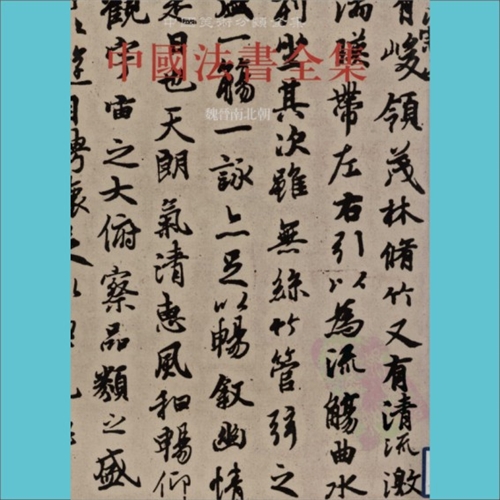 中國美術分類全集
中國法書全集
魏晉南北朝
有峻領茂林脩竹又有清流激
湍暎帶左右引以為流觴曲水
列坐其次雖無絲竹管弦之
盛一觴一詠亦足以暢敘幽情
是日也天朗氣清惠風和暢仰
觀宇宙之大俯察品類之盛
遊目騁懷足以極視